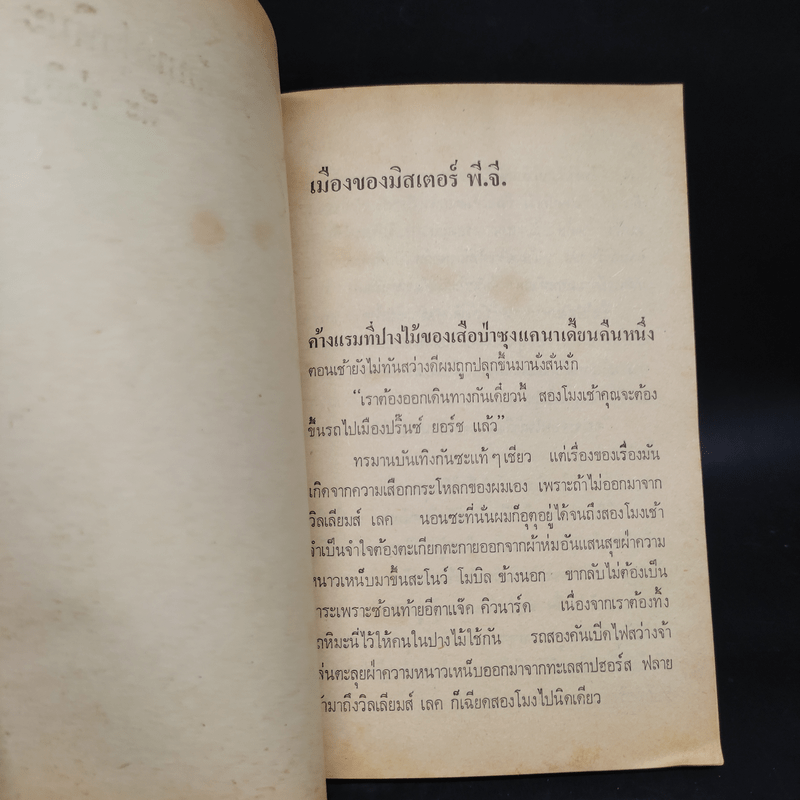 เมืองของมิสเตอร์ พี.จี.
ค้างแรมที่ปางไม้ของเสือป่าซุงแคนาเดี้ยนคืนหนึ่ง
ตอนเช้ายังไม่ทันสว่างดีผมถูกปลุกขึ้นมานั่งสั่นงั่ก
“เราต้องออกเดินทางกันเดี๋ยวนี้ สองโมงเช้าคุณจะต้อง
ขึ้นรถไปเมืองปริ๊นซ์ ยอร์ช แล้ว”
ทรมานบันเทิงกันซะแท้ ๆ เชียว แต่เรื่องของเรื่องมัน
เกิดจากความเสือกกระโหลกของผมเอง เพราะถ้าไม่ออกมาจาก
วิลเลียมส์ เลค นอนซะที่นั่นผมก็อุตุอยู่ได้จนถึงสองโมงเช้า
จำเป็นจำใจต้องตะเกียกตะกายออกจากผ้าห่มอันแสนสุขฝ่าความ
หนาวเหน็บมาขึ้นสะโนว์ โมบิล ข้างนอก ขากลับไม่ต้องเป็น
าระเพราะซ้อนท้ายอีตาแจ๊ค คิวนาร์ด เนื่องจากเราต้องทิ้ง
ถหิมะนี่ไว้ให้คนในปางไม้ใช้กัน รถสองคันเปิดไฟสว่างจ้า
ล่นตะลุยฝ่าความหนาวเหน็บออกมาจากทะเลสาปฮอร์ส ฟลาย
ข้ามาถึงวิลเลียมส์ เลค ก็เฉียดสองโมงไปนิดเดียว